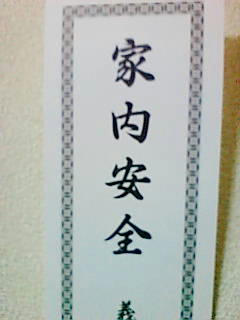 家内安全
義